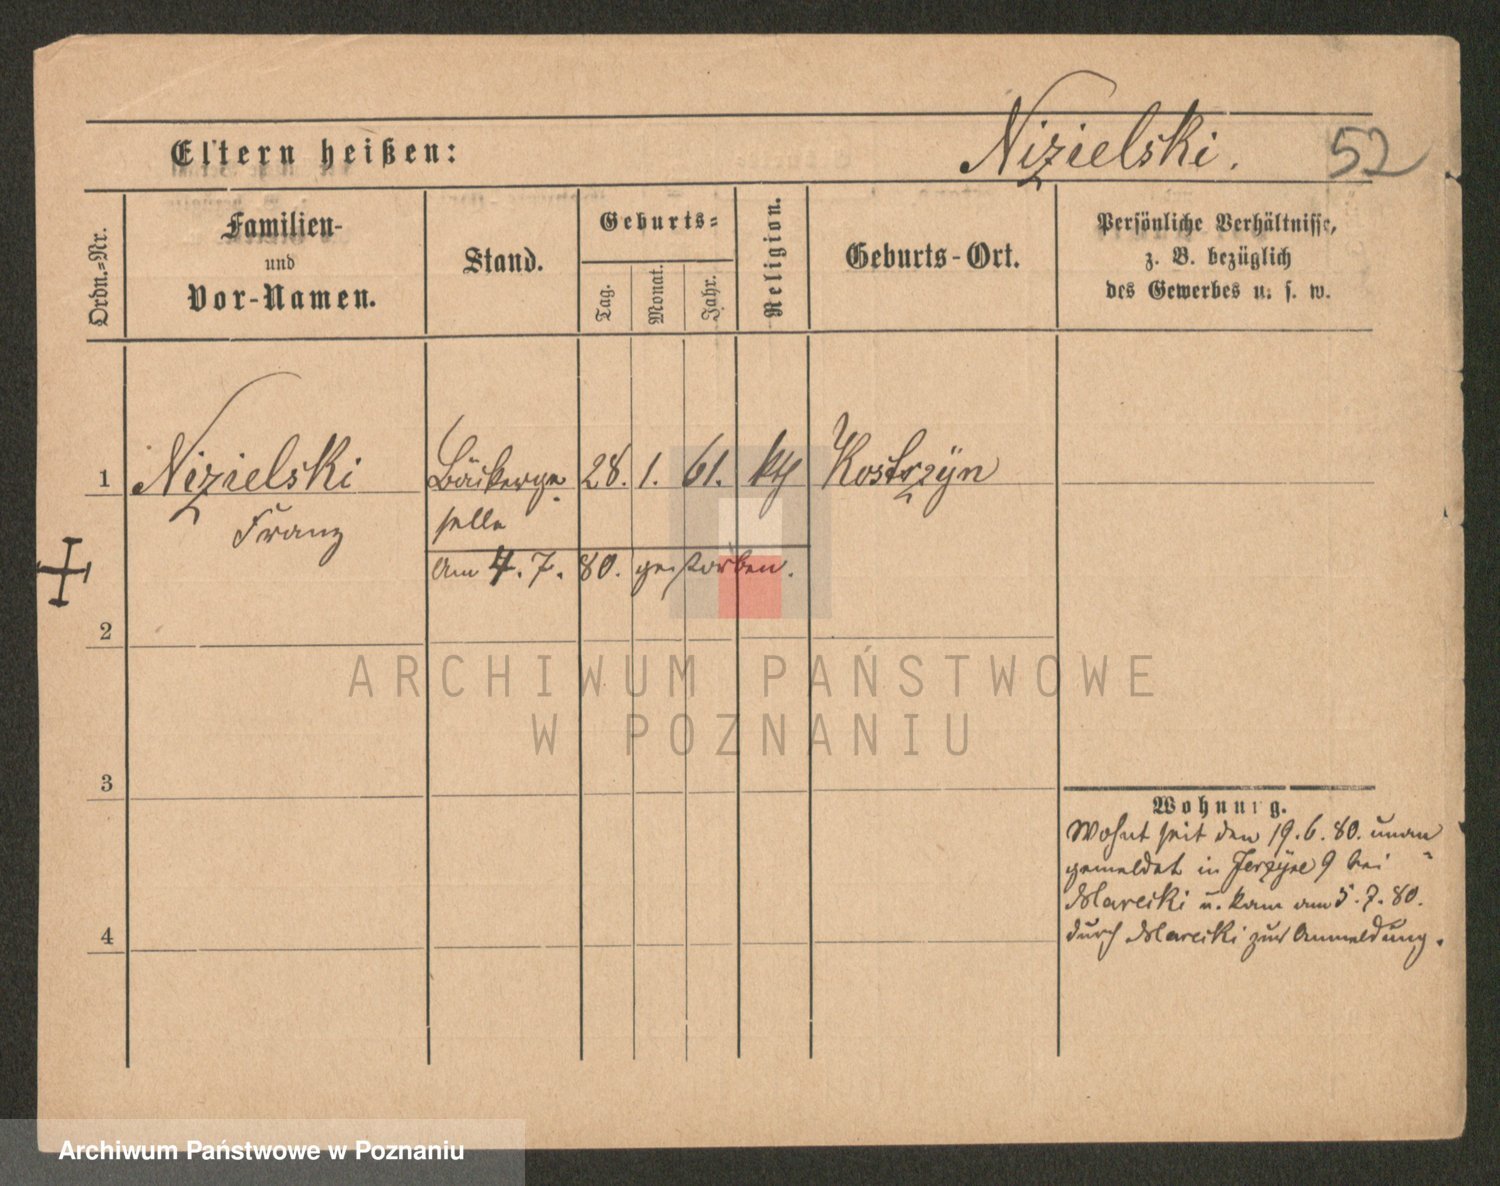 Eltern heißen:
Nizielski.
52
Ordn.-Nr.
Familien-
und
Vor-Namen.
Stand.
Geburts-
Tag.
Monat.
Jahr.
Religion.
Geburts-Ort.
Persönliche Verhältnisse,
z. B. bezüglich
des Gewerbes u. s. w.
1 Nizielski Bäckerge- 28. 1. 61. kth Kostrzyn
Franz selle
am 4. 7. 80. gestorben.
2
3
4
Wohnung.
Wohnt seit den 19. 6. 80. unan-
gemeldet in 9 bei
Marecki u. kam am 5. 7. 80.
durch Marecki zur Anmeldung.
ARCHIWUM PAŃSTWOWE
W POZNANIU
Archiwum Państwowe w Poznaniu